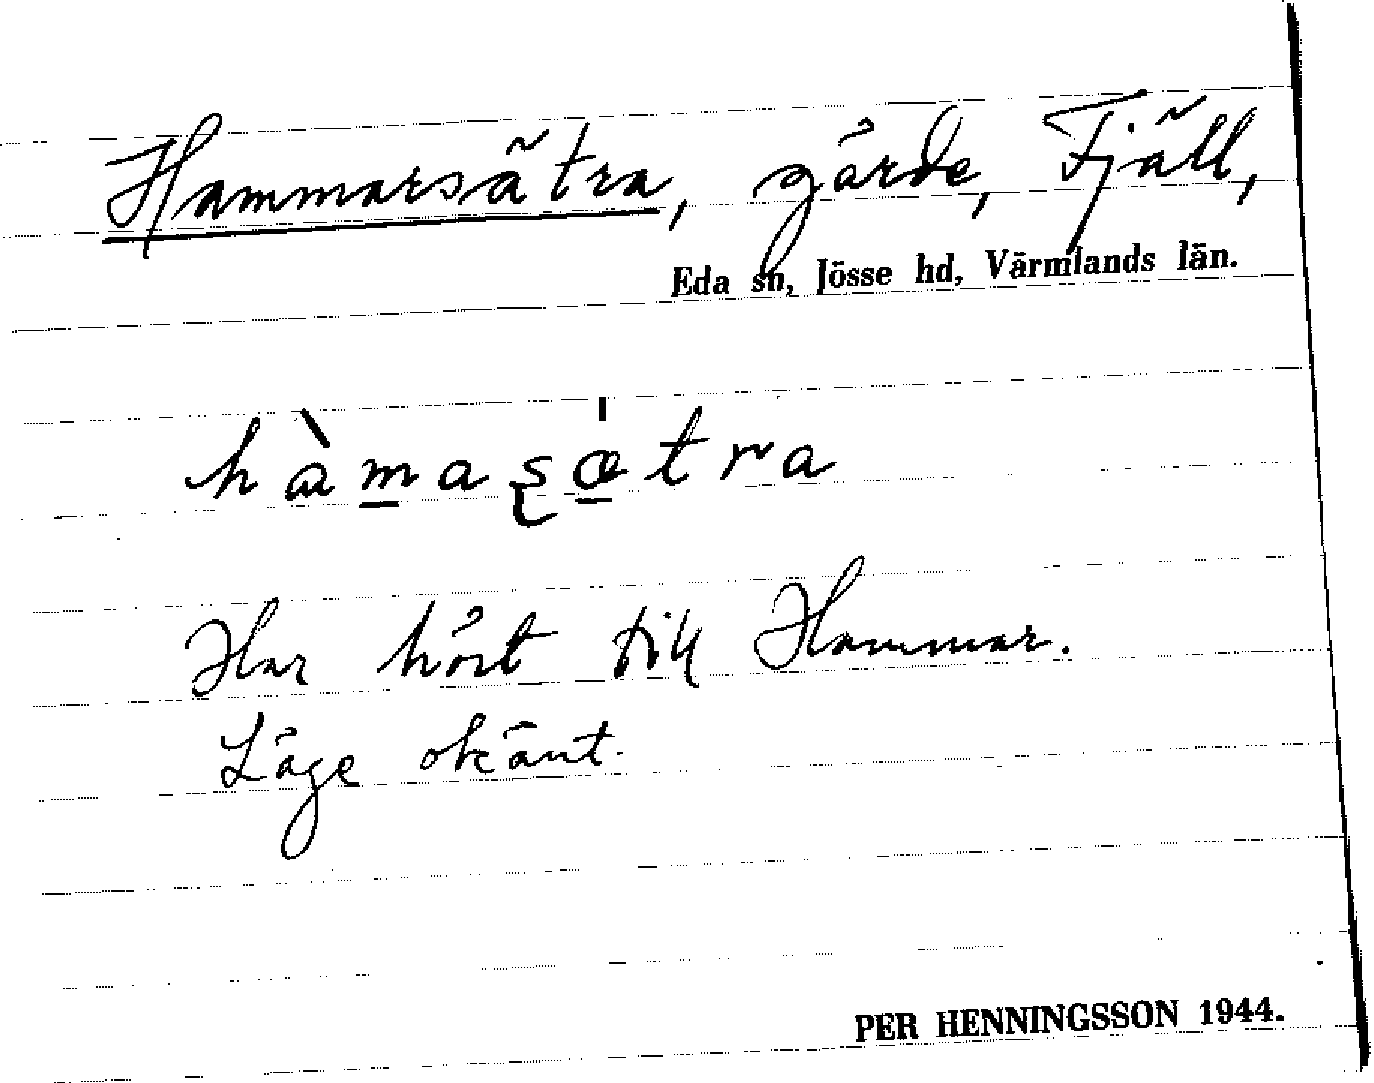 Hammarsätra, gärde, Fjäll,
Eda sn, Jösse hd, Värmlands län.
hàmaʂæ̍tra
Har hört till Hammar.
Läge okänt.
PER HENNINGSSON 1944.